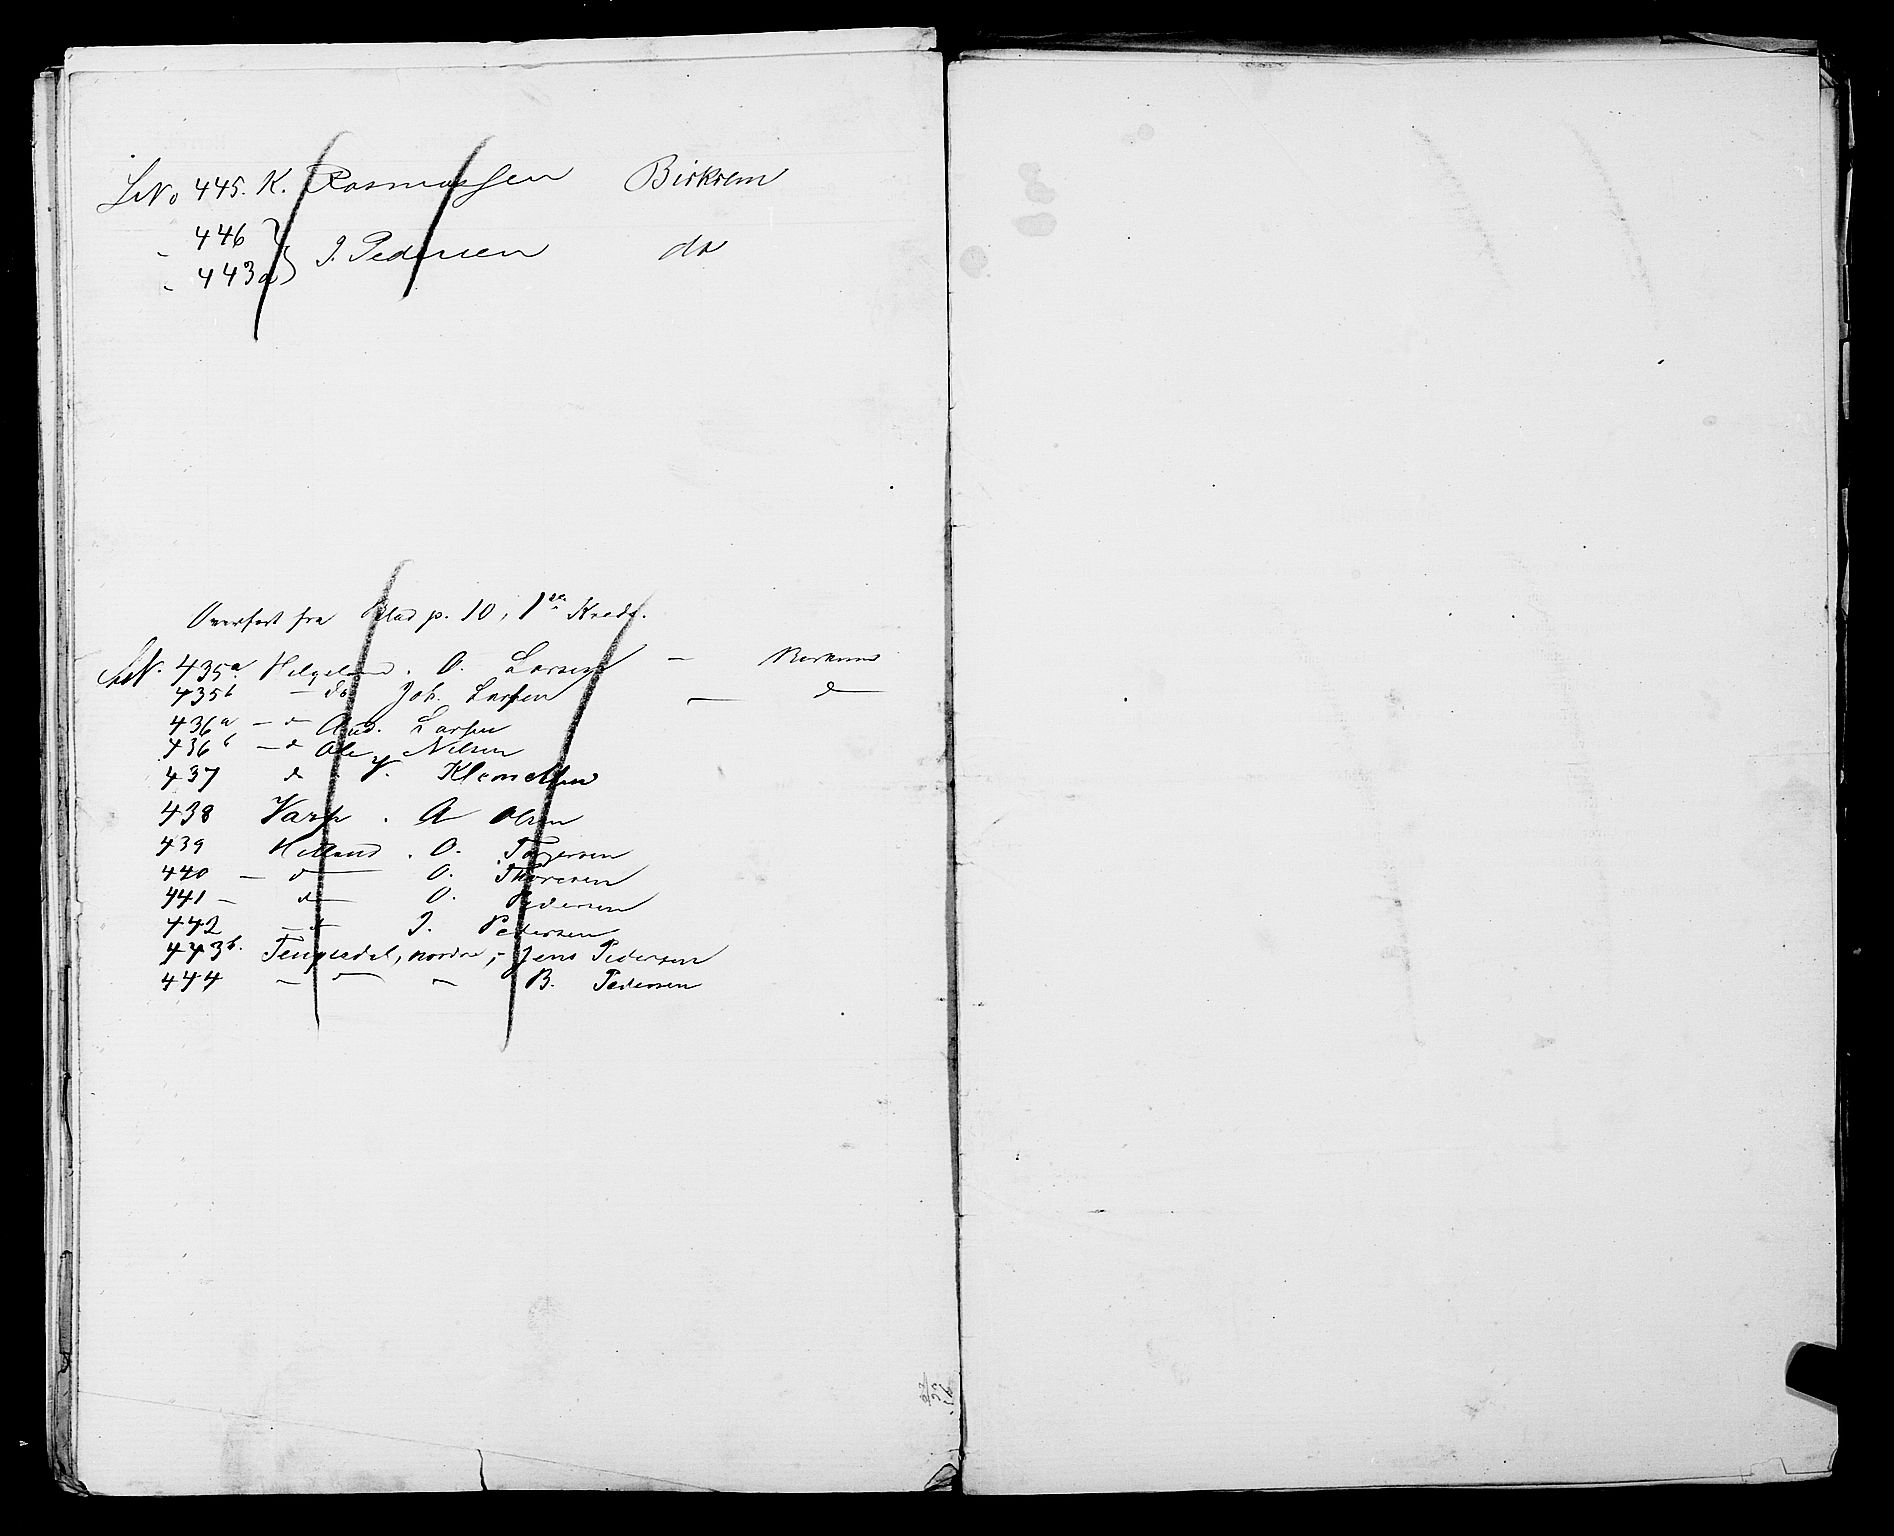 LNo 445. K. Rasmussen Birkrem
" 446 } J. Pedersen do
" 443a }
Overført fra Blad p. 10, 1ste Kreds.
LN. 435a Helgeland. O. Larsen — Birkrem
435b — do Joh. Larsen — d—
436a — d— And. Larsen
436b — d Ole Nilsen
437 d . V. Klemetsen
438 Varp . A Olsen
439 Helland . O. Torgersen
440 — d— O. Thoresen
441 — d— O. Pedersen
442 — d— J. Pedersen
443b. Tengesdal, nordre, – Jens Pedersen
444 — — — B. Pedersen